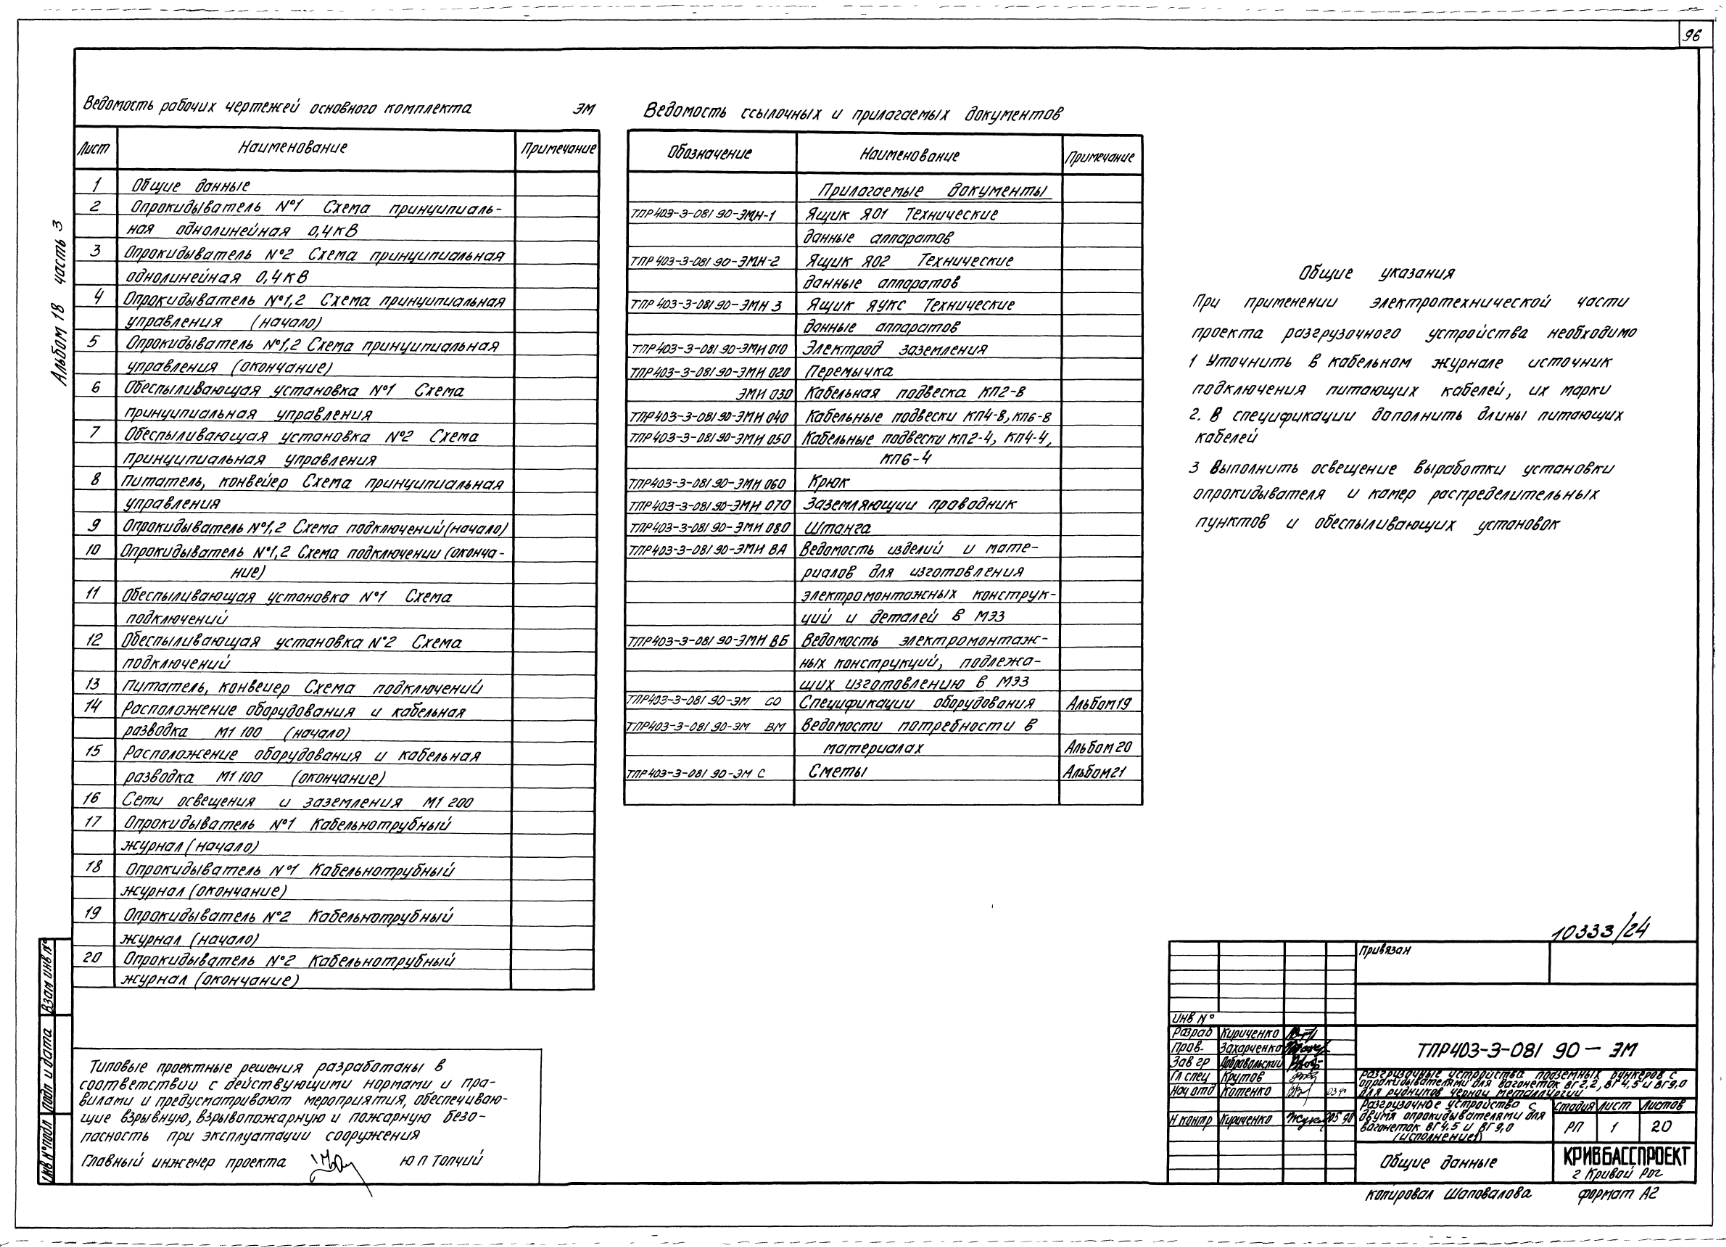 96
Альбом 18 часть 3
Ведомость рабочих чертежей основного комплекта ЭМ
Лист Наименование Примечание
1 Общие данные
2 Опрокидыватель №1 Схема принципиаль-
ная однолинейная 0,4кВ
3 Опрокидыватель №2 Схема принципиальная
однолинейная 0,4кВ
4 Опрокидыватель №1,2 Схема принципиальная
управления (начало)
5 Опрокидыватель №1,2 Схема принципиальная
управления (окончание)
6 Обеспыливающая установка №1 Схема
принципиальная управления
7 Обеспыливающая установка №2 Схема
принципиальная управления
8 Питатель, конвейер Схема принципиальная
управления
9 Опрокидыватель №1,2 Схема подключений (начало)
10 Опрокидыватель №1,2 Схема подключении (оконча-
ние)
11 Обеспыливающая установка №1 Схема
подключений
12 Обеспыливающая установка №2 Схема
подключений
13 Питатель, конвеиер Схема подключений
14 Расположение оборудования и кабельная
разводка М1 100 (начало)
15 Расположение оборудования и кабельная
разводка М1 100 (окончание)
16 Сети освещения и заземления М1 200
17 Опрокидыватель №1 Кабельнотрубный
журнал (начало)
18 Опрокидыватель №1 Кабельнотрубный
журнал (окончание)
19 Опрокидыватель №2 Кабельнотрубный
журнал (начало)
20 Опрокидыватель №2 Кабельнотрубный
журнал (окончание)
Ведомость ссылочных и прилагаемых документов
Обозначение Наименование Примечание
Прилагаемые документы
ТПР403-3-081 90-ЭМН-1 Ящик Я01 Технические
данные аппаратов
ТПР403-3-081 90-ЭМН-2 Ящик Я02 Технические
данные аппаратов
ТПР 403-3-081 90-ЭМН 3 Ящик ЯУКС Технические
данные аппаратов
ТПР403-3-081 90-ЭМИ 010 Электрод заземления
ТПР403-3-081 90-ЭМИ 020 Перемычка
ЭМИ 030 Кабельная подвеска КП2-8
ТПР403-3-081 90-ЭМИ 040 Кабельные подвески КП4-8, КП6-8
ТПР403-3-081 90-ЭМИ 050 Кабельные подвески КП2-4, КП4-4,
КП6-4
ТПР403-3-081 90-ЭМИ 060 Крюк
ТПР403-3-081 90-ЭМИ 070 Заземляющий проводник
ТПР403-3-081 90-ЭМИ 080 Штанга
ТПР403-3-081 90-ЭМИ ВА Ведомость изделий и мате-
риалов для изготовления
электромонтажных конструк-
ций и деталей в МЭЗ
ТПР403-3-081 90-ЭМИ ВБ Ведомость электромонтаж-
ных конструкций, подлежа-
щих изготовлению в МЭЗ
ТПР403-3-081 90-ЭМ СО Спецификации оборудования Альбом 19
ТПР403-3-081 90-ЭМ ВМ Ведомости потребности в
материалах Альбом 20
ТПР403-3-081 90-ЭМ С Сметы Альбом 21
Общие указания
При применении электротехнической части
проекта разгрузочного устройства необходимо
1 Уточнить в кабельном журнале источник
подключения питающих кабелей, их марки
2. В спецификации дополнить длины питающих
кабелей
3 Выполнить освещение выработки установки
опрокидывателя и камер распределительных
пунктов и обеспыливающих установок
Типовые проектные решения разработаны в
соответствии с действующими нормами и пра-
вилами и предусматривают мероприятия, обеспечиваю-
щие взрывную, взрывопожарную и пожарную безо-
пасность при эксплуатации сооружения
Главный инженер проекта Ю П Топчий
Инв № подл Подп и дата Взам инв №
10333/24
Привязан
Инв №
Разраб Кириченко
Пров. Захарченко
Зав гр Добровольский
Гл спец Крутов
Нач отд Котенко
Н контр Кириченко 05 90
ТПР403-3-081 90-ЭМ
Разгрузочные устройства подземных бункеров с
опрокидывателями для вагонеток ВГ2,2, ВГ4,5 и ВГ9,0
для рудников черной металлургии
Разгрузочное устройство с
двумя опрокидывателями для
вагонеток ВГ4,5 и ВГ9,0
Стадия Лист Листов
РП 1 20
Общие данные
КРИВБАССПРОЕКТ
г Кривой Рог
Копировал Шаповалова Формат А2